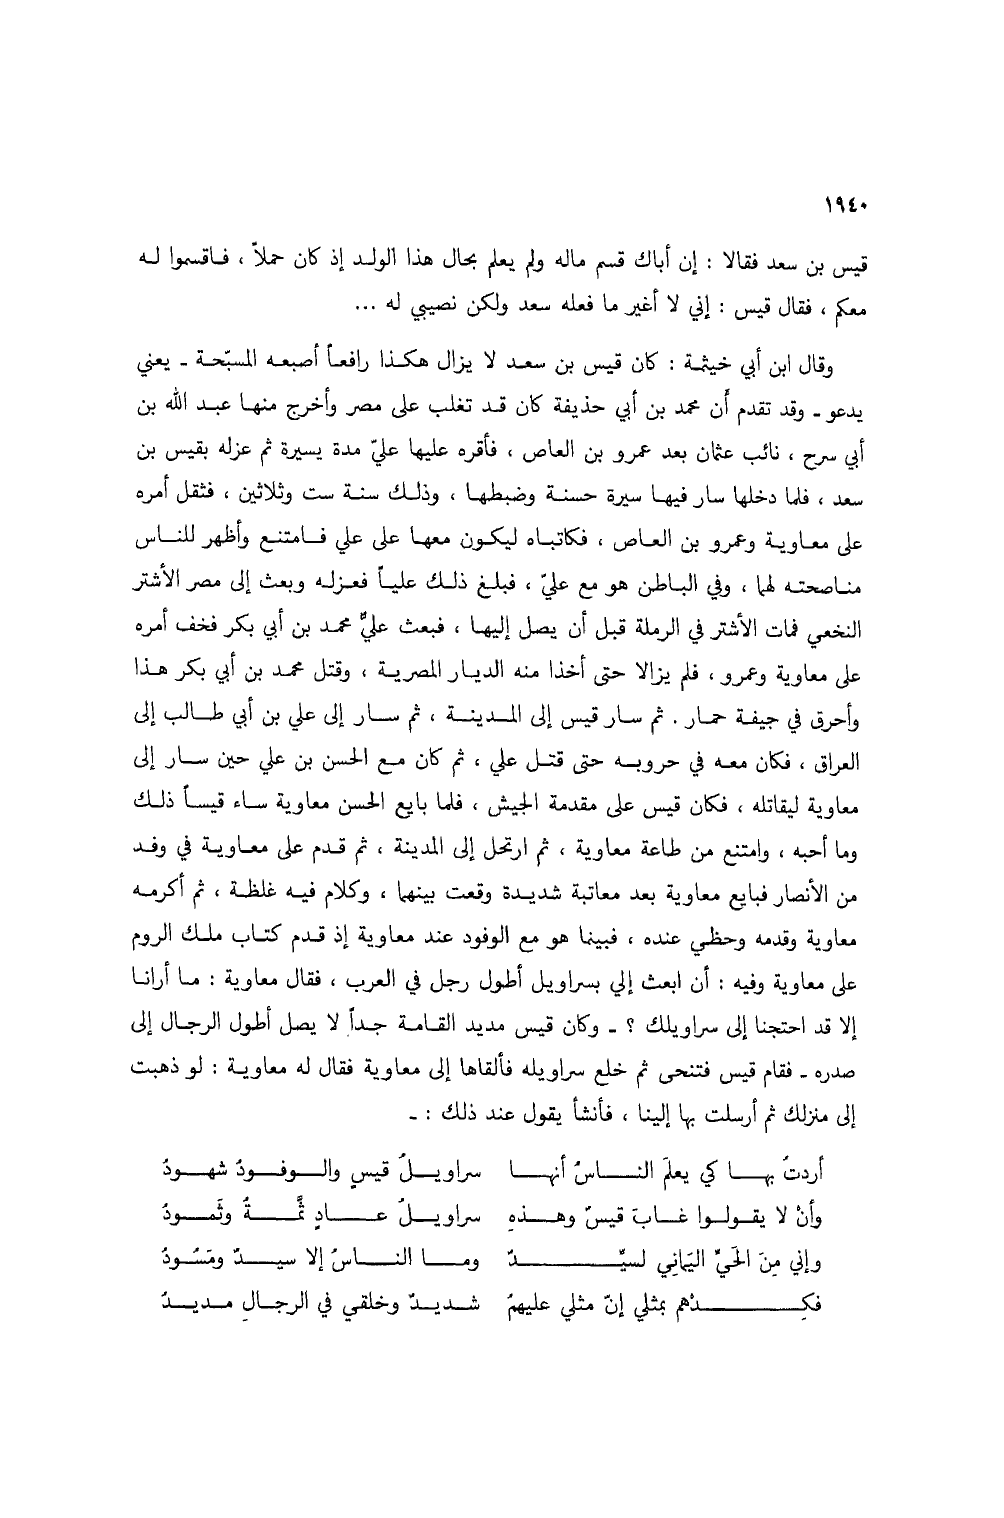 ١٩٤٠
قيس بن سعد فقالا : إن أباك قسم ماله ولم يعلم بحال هذا الولد إذ كان حملاً ، فاقسموا له
معكم ، فقال قيس : إني لا أغير ما فعله سعد ولكن نصيبي له ...
وقال ابن أبي خيثمة : كان قيس بن سعد لا يزال هكذا رافعاً أصبعه المسبّحة ـ يعني
يدعو ـ وقد تقدم أن محمد بن أبي حذيفة كان قد تغلب على مصر وأخرج منها عبد الله بن
أبي سرح ، نائب عثمان بعد عمرو بن العاص ، فأقره عليها عليّ مدة يسيرة ثم عزله بقيس بن
سعد ، فلما دخلها سار فيها سيرة حسنة وضبطها ، وذلك سنة ست وثلاثين ، فثقل أمره
على معاوية وعمرو بن العاص ، فكاتباه ليكون معهما على علي فامتنع وأظهر للناس
مناصحته لهما ، وفي الباطن هو مع عليّ ، فبلغ ذلك علياً فعزله وبعث إلى مصر الأشتر
النخعي فمات الأشتر في الرملة قبل أن يصل إليها ، فبعث عليٌّ محمد بن أبي بكر فخف أمره
على معاوية وعمرو ، فلم يزالا حتى أخذا منه الديار المصرية ، وقتل محمد بن أبي بكر هذا
وأحرق في جيفة حمار . ثم سار قيس إلى المدينة ، ثم سار إلى علي بن أبي طالب إلى
العراق ، فكان معه في حروبه حتى قتل علي ، ثم كان مع الحسن بن علي حين سار إلى
معاوية ليقاتله ، فكان قيس على مقدمة الجيش ، فلما بايع الحسن معاوية ساء قيساً ذلك
وما أحبه ، وامتنع من طاعة معاوية ، ثم ارتحل إلى المدينة ، ثم قدم على معاوية في وفد
من الأنصار فبايع معاوية بعد معاتبة شديدة وقعت بينهما ، وكلام فيه غلظة ، ثم أكرمه
معاوية وقدمه وحظي عنده ، فبينا هو مع الوفود عند معاوية إذ قدم كتاب ملك الروم
على معاوية وفيه : أن ابعث إلي بسراويل أطول رجل في العرب ، فقال معاوية : ما أرانا
إلا قد احتجنا إلى سراويلك ؟ ـ وكان قيس مديد القامة جداً لا يصل أطول الرجال إلى
صدره ـ فقام قيس فتنحى ثم خلع سراويله فألقاها إلى معاوية فقال له معاوية : لو ذهبت
إلى منزلك ثم أرسلت بها إلينا ، فأنشأ يقول عند ذلك : ـ
أردتُ بها كي يعلمَ الناسُ أنها سراويلُ قيسٍ والوفودُ شهودُ
وأنْ لا يقولوا غابَ قيسٌ وهذهِ سراويلُ عادٍ ثمّةٌ وثَمودُ
وإني مِنَ الحَيِّ اليَمَاني لسيِّدٌ وما الناسُ إلا سيدٌ ومَسُودُ
فكِدْهم بمثلي إنّ مثلي عليهمُ شديدٌ وخلقي في الرجالِ مديدُ